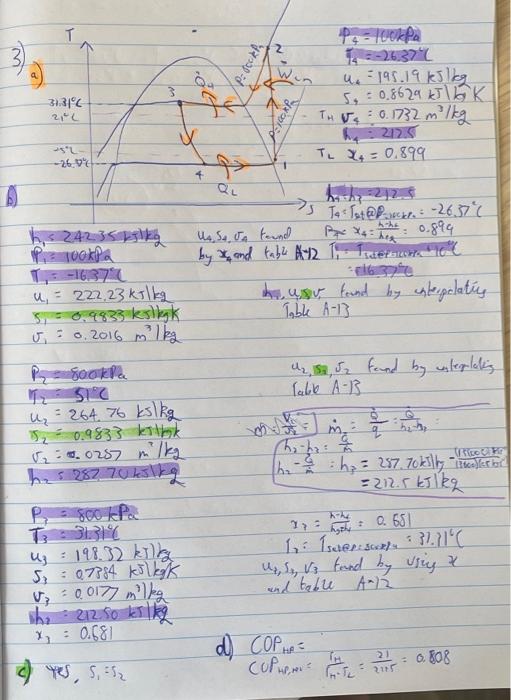 3)
a)
T
P=800kPa
2
Q̇H
Ẇin
3
31.31°C
21°C
TH
P=100kPa
-5°C
-26.37°C
TL
4
1
QL
S
P4 = 100kPa
T4 = -26.37°C
u4 = 195.19 kJ/kg
S4 = 0.8629 kJ/kg K
v4 = 0.1732 m³/kg
h4 = 212.5
x4 = 0.899
b)
h4=h3 = 212.5
T4 = Tsat@P=100kPa = -26.37°C
x4 = = 0.899
h1 = 242.35 kJ/kg
P1 = 100kPa
T1 = -16.37°C
u1 = 222.23 kJ/kg
S1 = 0.9833 kJ/kgK
v1 = 0.2016 m³/kg
u4, s4, v4 found
by x4 and table A-12
T1 = +10°C
= -16.37°C
h1, u, s, v found by interpolating
Table A-13
P2 = 800kPa
T2 = 51°C
u2 = 264.76 kJ/kg
S2 = 0.9833 kJ/kgK
v2 = 0.0287 m³/kg
h2 = 287.70 kJ/kg
u2, s2, v2 found by interpolating
Table A-13
h2-h3 =
h2 - : h3 = 287.70 kJ/kg
= 212.5 kJ/kg
P3 = 800 kPa
T3 = 31.31°C
u3 = 198.32 kJ/kg
S3 = 0.7384 kJ/kgK
v3 = 0.0177 m³/kg
h3 = 212.50 kJ/kg
x3 = 0.681
x3 = = 0.681
T3 = Tsat@P=800kPa = 31.31°C
u3, s3, v3 found by using x
and table A-12
c) yes, S1=S2
d) COP HP =
COP HP,rev = TH/TH-TL = 21/ = 0.808